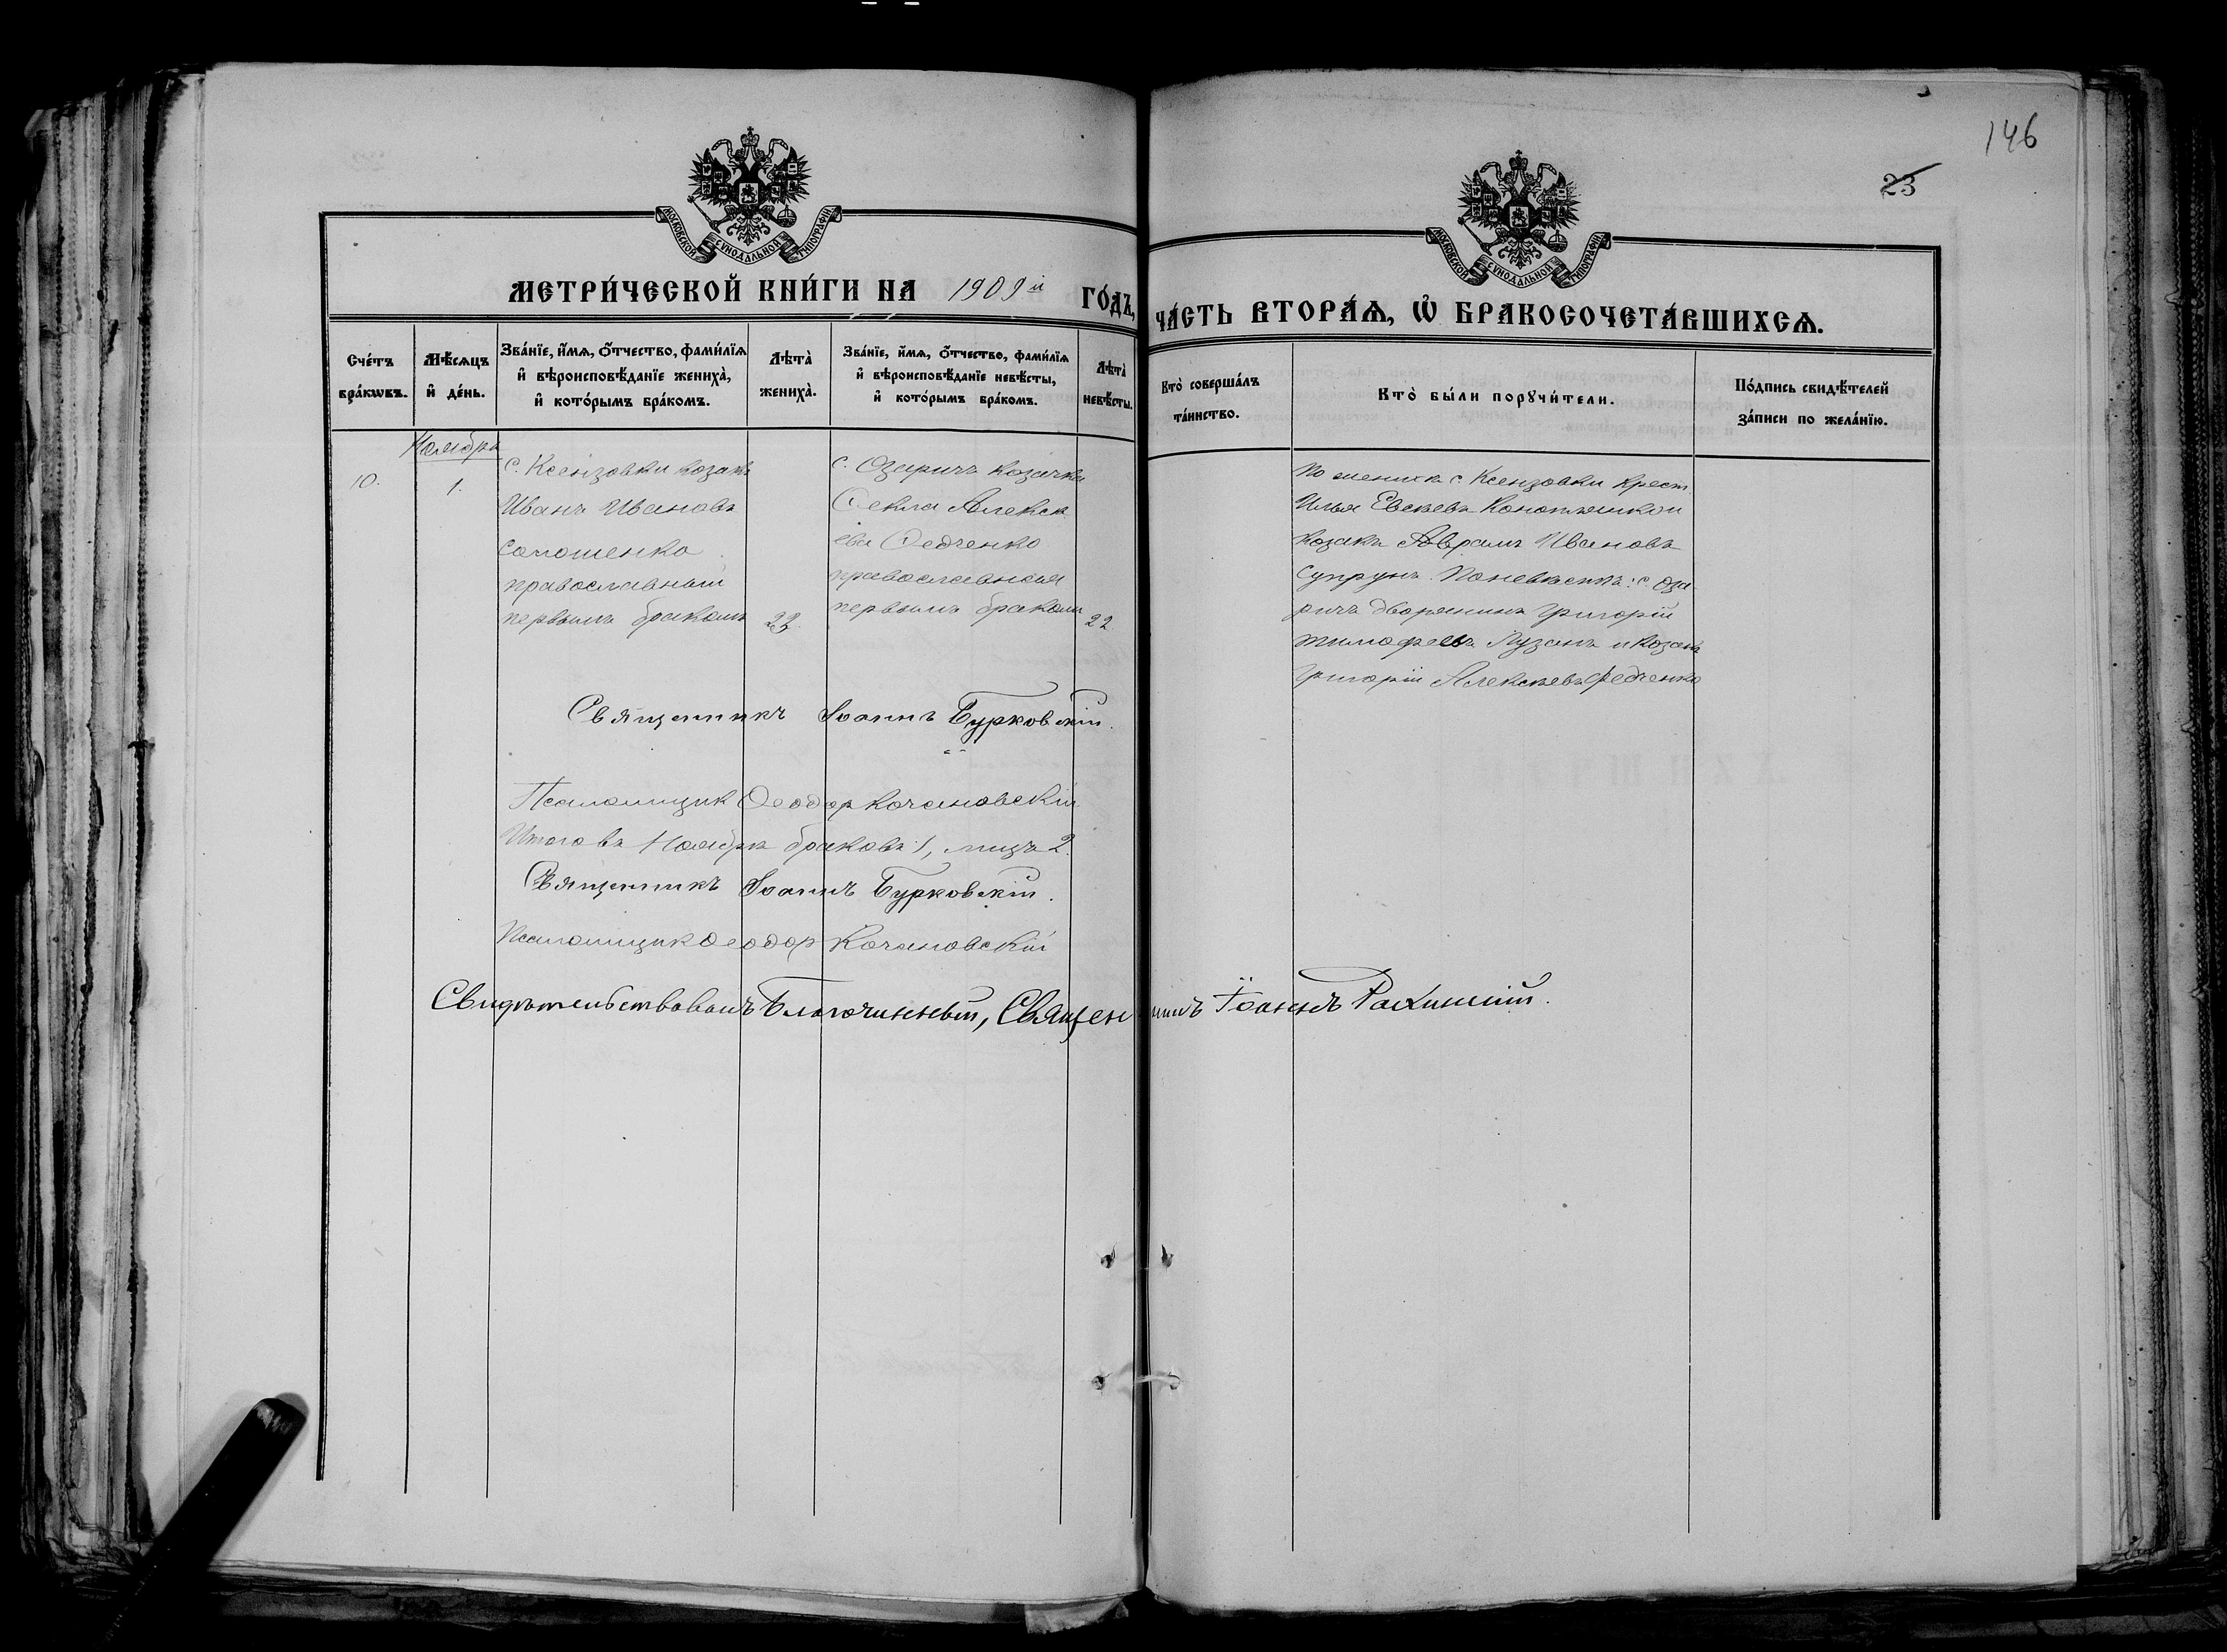 146
23
МОСКОВСКОЙ СѴНОДАЛЬНОЙ ТИПОГРАФІИ.
МОСКОВСКОЙ СѴНОДАЛЬНОЙ ТИПОГРАФІИ.
МЕТРИ́ЧЕСКОЙ КНИ́ГИ НА 1909 й ГО́ДЪ,
ЧА́СТЬ ВТОРА́Ѧ, Ѡ҆ БРАКОСОЧЕТА́ВШИХСѦ.
Сче́тъ
бра́кѡвъ.
Мѣ́сѧцъ
и҆ де́нь.
Зва́нїе, и҆́мѧ, ѻ҆́тчество, фами́лїѧ
и҆ вѣроисповѣ́данїе жениха̀,
и҆ кото́рымъ бра́комъ.
Лѣта̀
жениха̀.
Зва́нїе, и҆́мѧ, ѻ҆́тчество, фами́лїѧ
и҆ вѣроисповѣ́данїе невѣ́сты,
и҆ кото́рымъ бра́комъ.
Лѣта̀
невѣ́сты.
Кто̀ соверша́лъ
та́инство.
Кто̀ бы́ли порꙋчи́тели.
По́дпись свидѣ́телей
за́писи по жела́нїю.
Ноября
10.
1.
с. Ксензовки козакъ
Иванъ Ивановъ
православный
первымъ бракомъ
22.
с. Озаричъ козачка
Ѳекла Алексѣ
ева Ѳедченко
православная
первымъ бракомъ
22
По женихѣ с. Ксензовки крест.
Илья Евсѣевъ
козакъ Аврамъ Ивановъ
Супрунъ. По невѣстѣ: с. Оза
ричъ дворянинъ Григорій
Тимофеевъ Лузанъ и козакъ
Григорій Алексѣевъ Федченко
Священникъ Іоаннъ Бурковскій.
Псаломщик Ѳеодор Кочановскій
Итого въ Ноябрѣ браковъ 1, лицъ 2.
Священникъ Іоаннъ Бурковскій.
Псаломщик Ѳеодор Кочановскій
Свидѣтельствовалъ Благочинный, Священникъ Іоаннъ